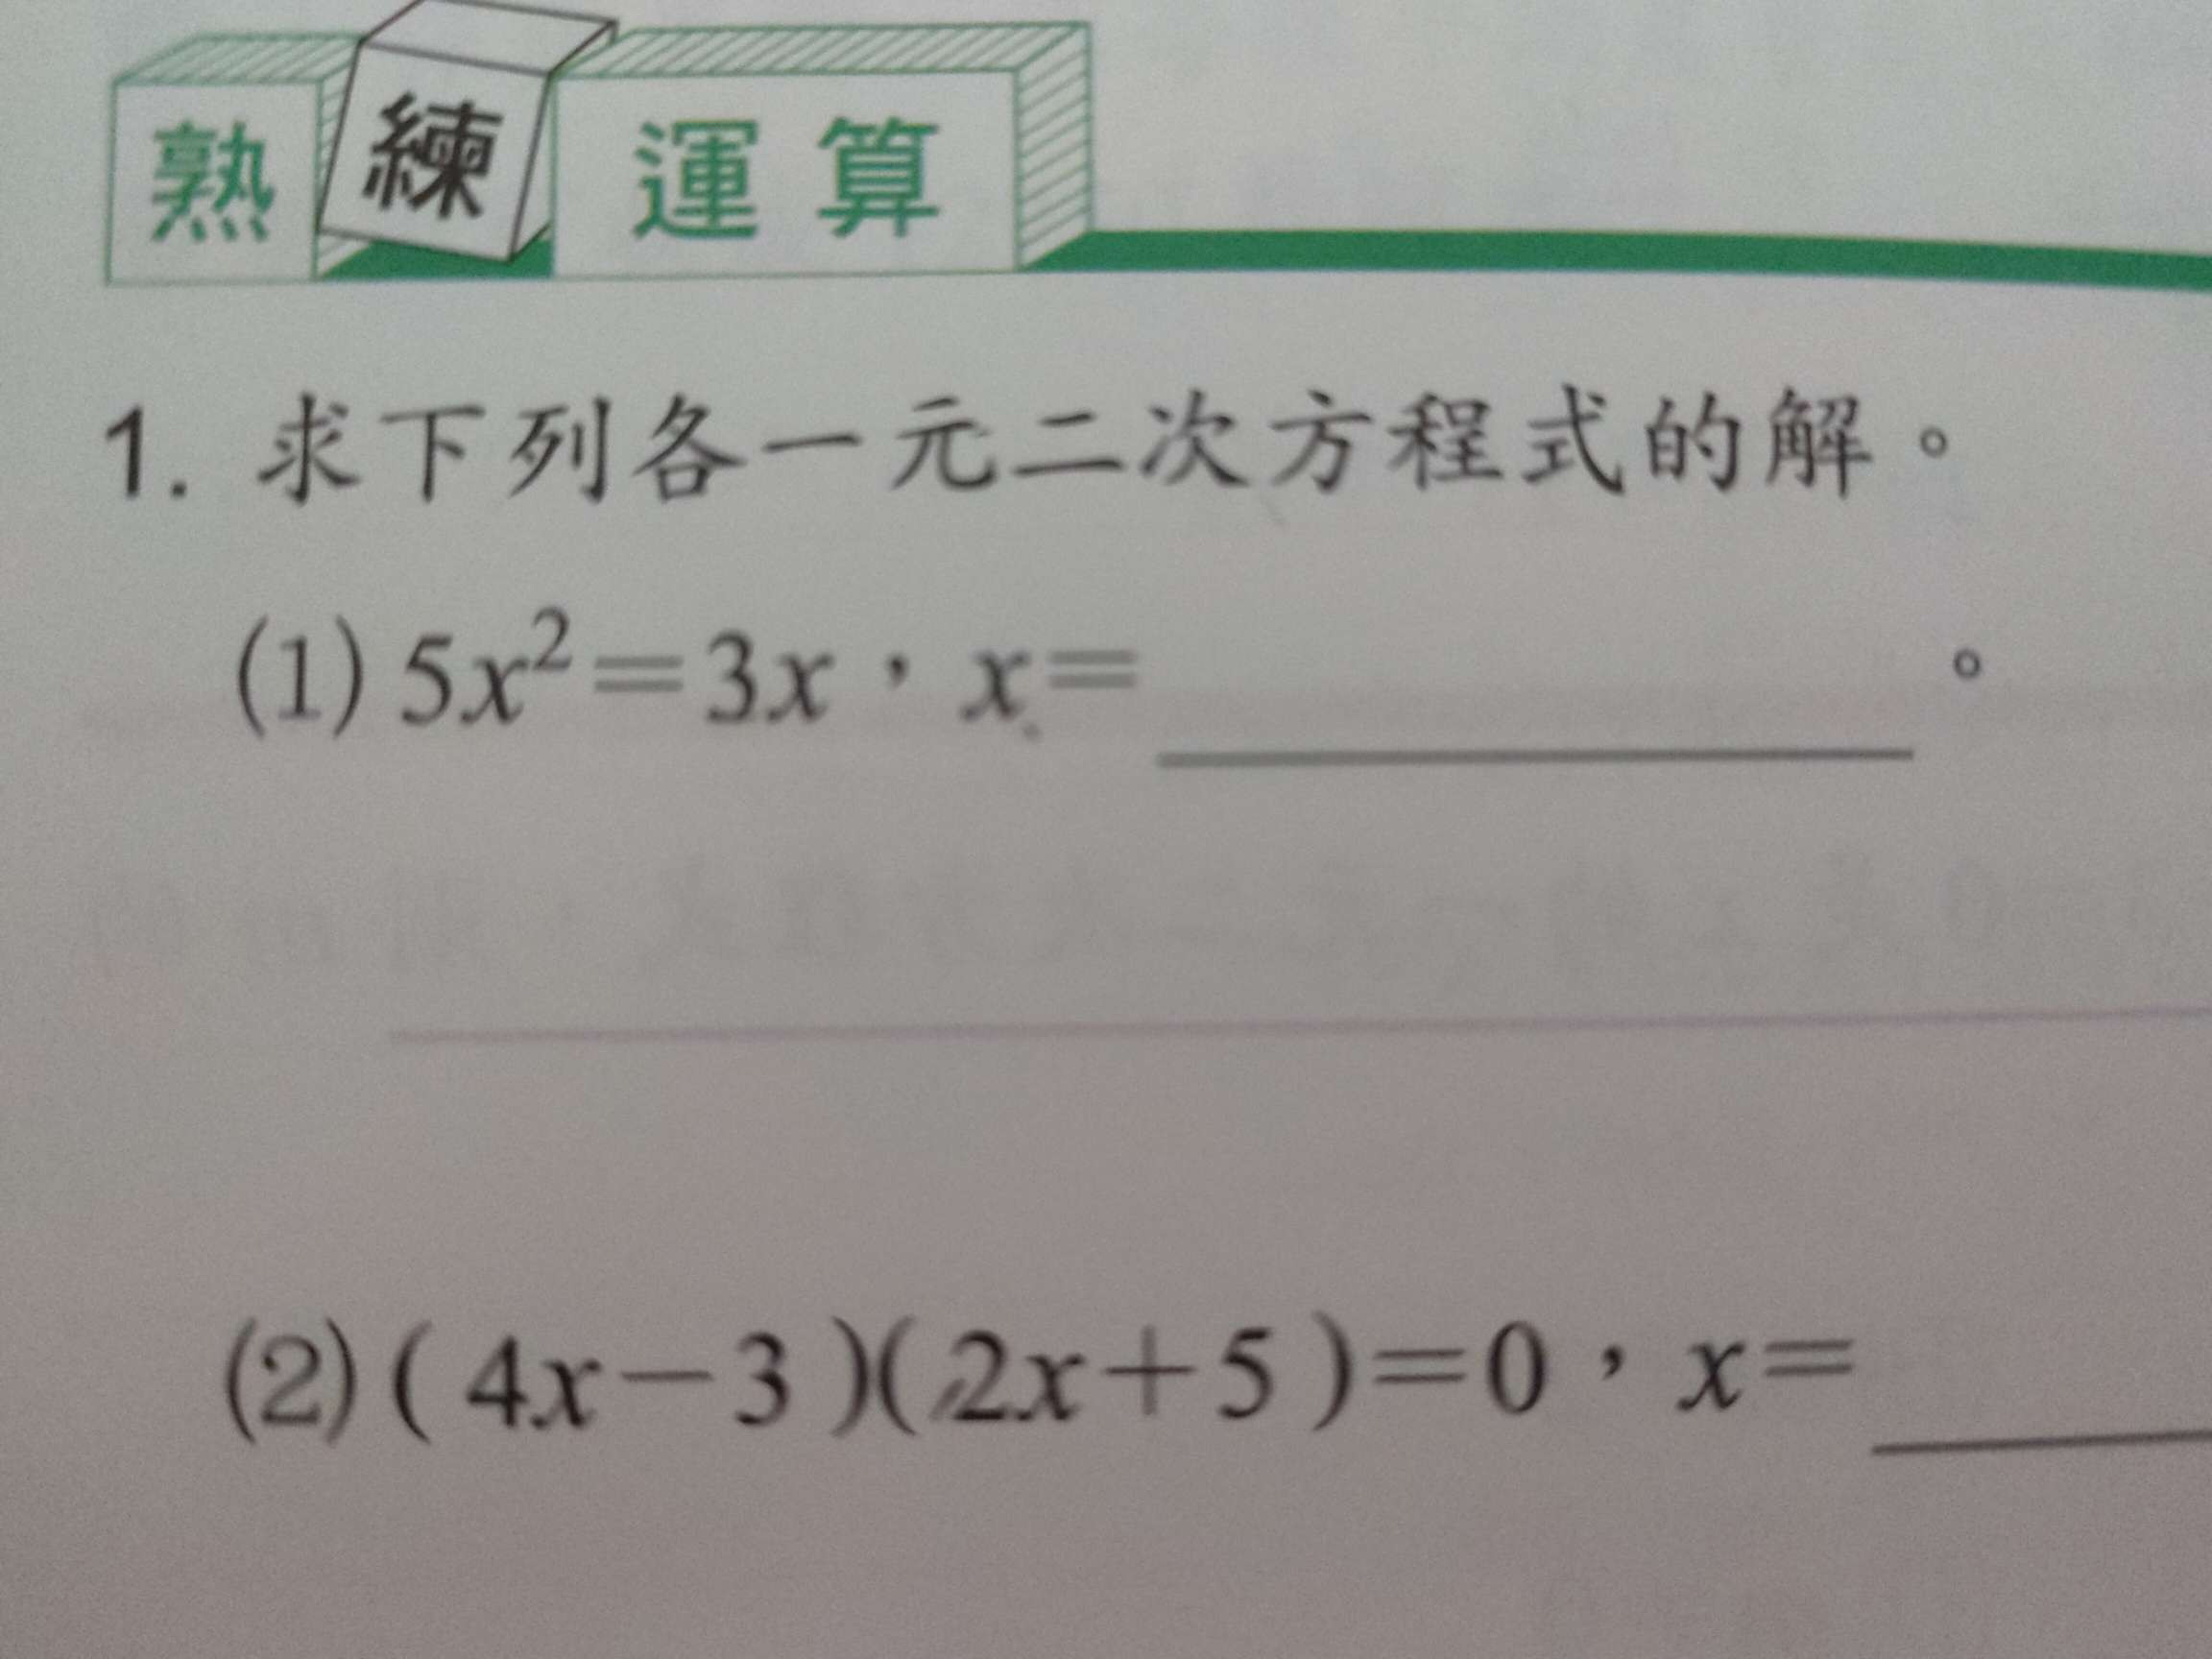 熟練運算
1. 求下列各一元二次方程式的解。
(1) 5x²=3x，x=＿＿＿＿＿＿。
(2) ( 4x－3 )( 2x＋5 )=0，x=＿＿＿